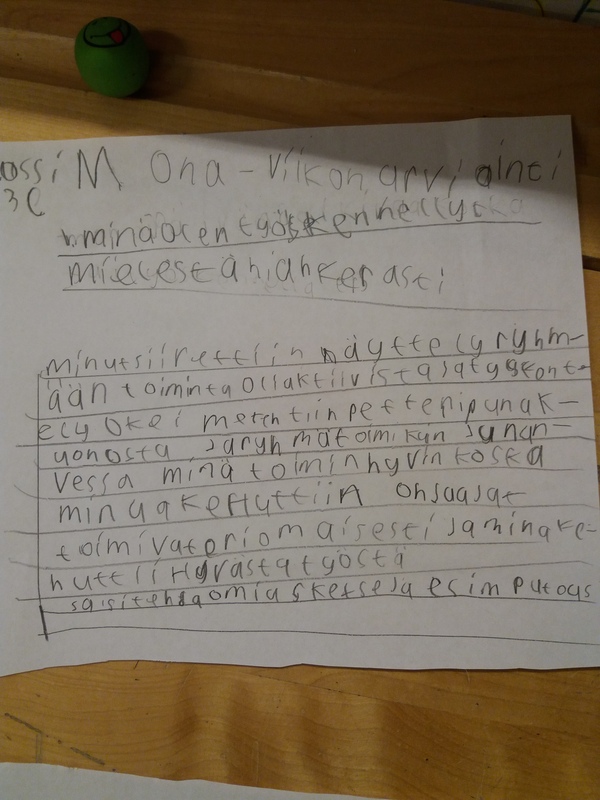 ossi M Ona-viikon arviointi
3C
minä olen työskennellyt
mielestäni ahkerasti
minut siirettiin näyttelyryhm-
ään toiminta oli aktiivista ja työskent-
ely oke i
yonosta ja ryhmä toimi kun Junan-
vessa minä toimin hyvin koska
minua kehuttiin Ohjaajat
toimivat eriomaisesti ja minä ke-
huttiin hyvästä työstä
sai si tehdä omia sketsejä esim putous